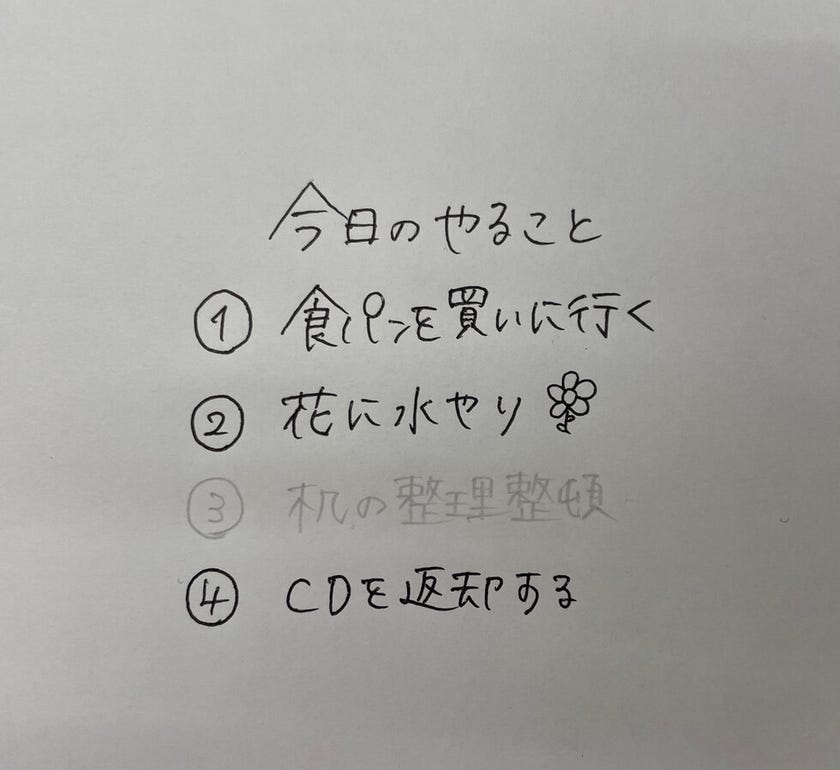 今日のやること
① 食パンを買いに行く
② 花に水やり
③ 机の整理整頓
④ CDを返却する